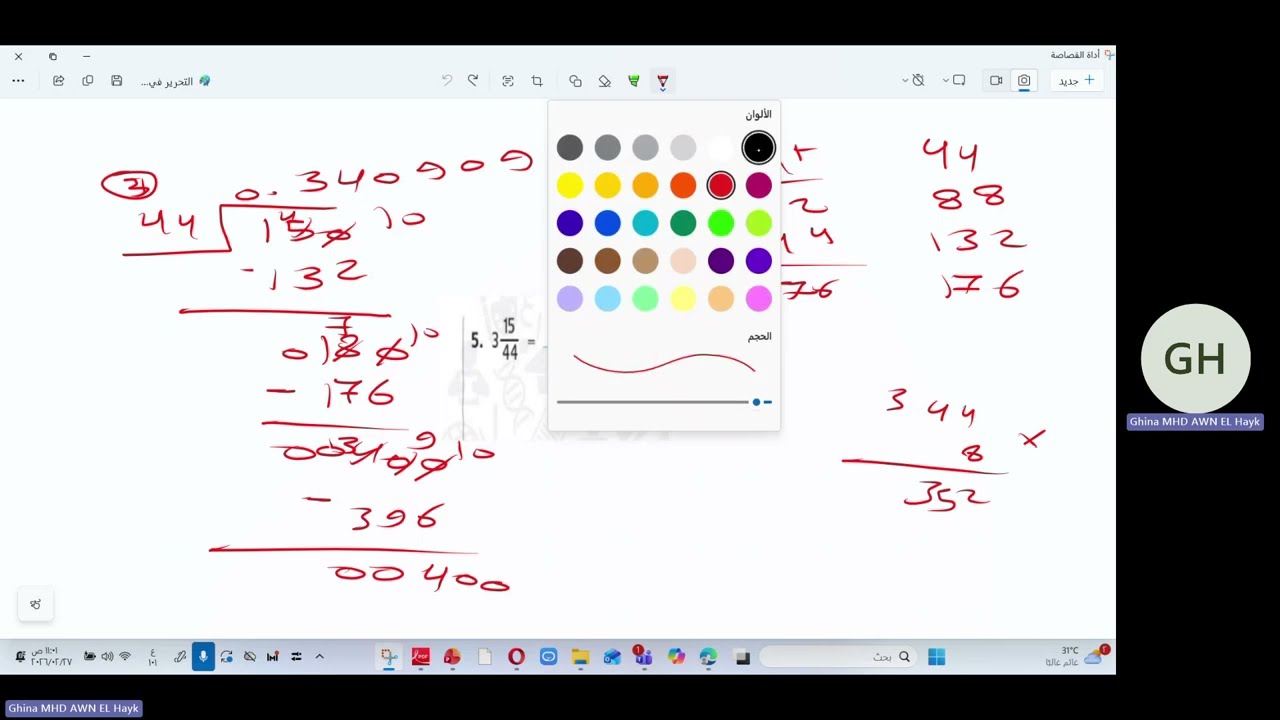 أداة القصاصة
جديد
التحرير في...
الألوان
الحجم
0.340909
44
150 10
-132
0180 10
- 176
00
- 396
00400
5. 3 15/44 =
76
44
88
132
176
3 44
8 ×
352
GH
Ghina MHD AWN EL Hayk
١١:٠١ ص
٢٠٢٦/٠٢/٢٧
ع
١٠١
بحث
31°C
عائم غالبًا
Ghina MHD AWN EL Hayk